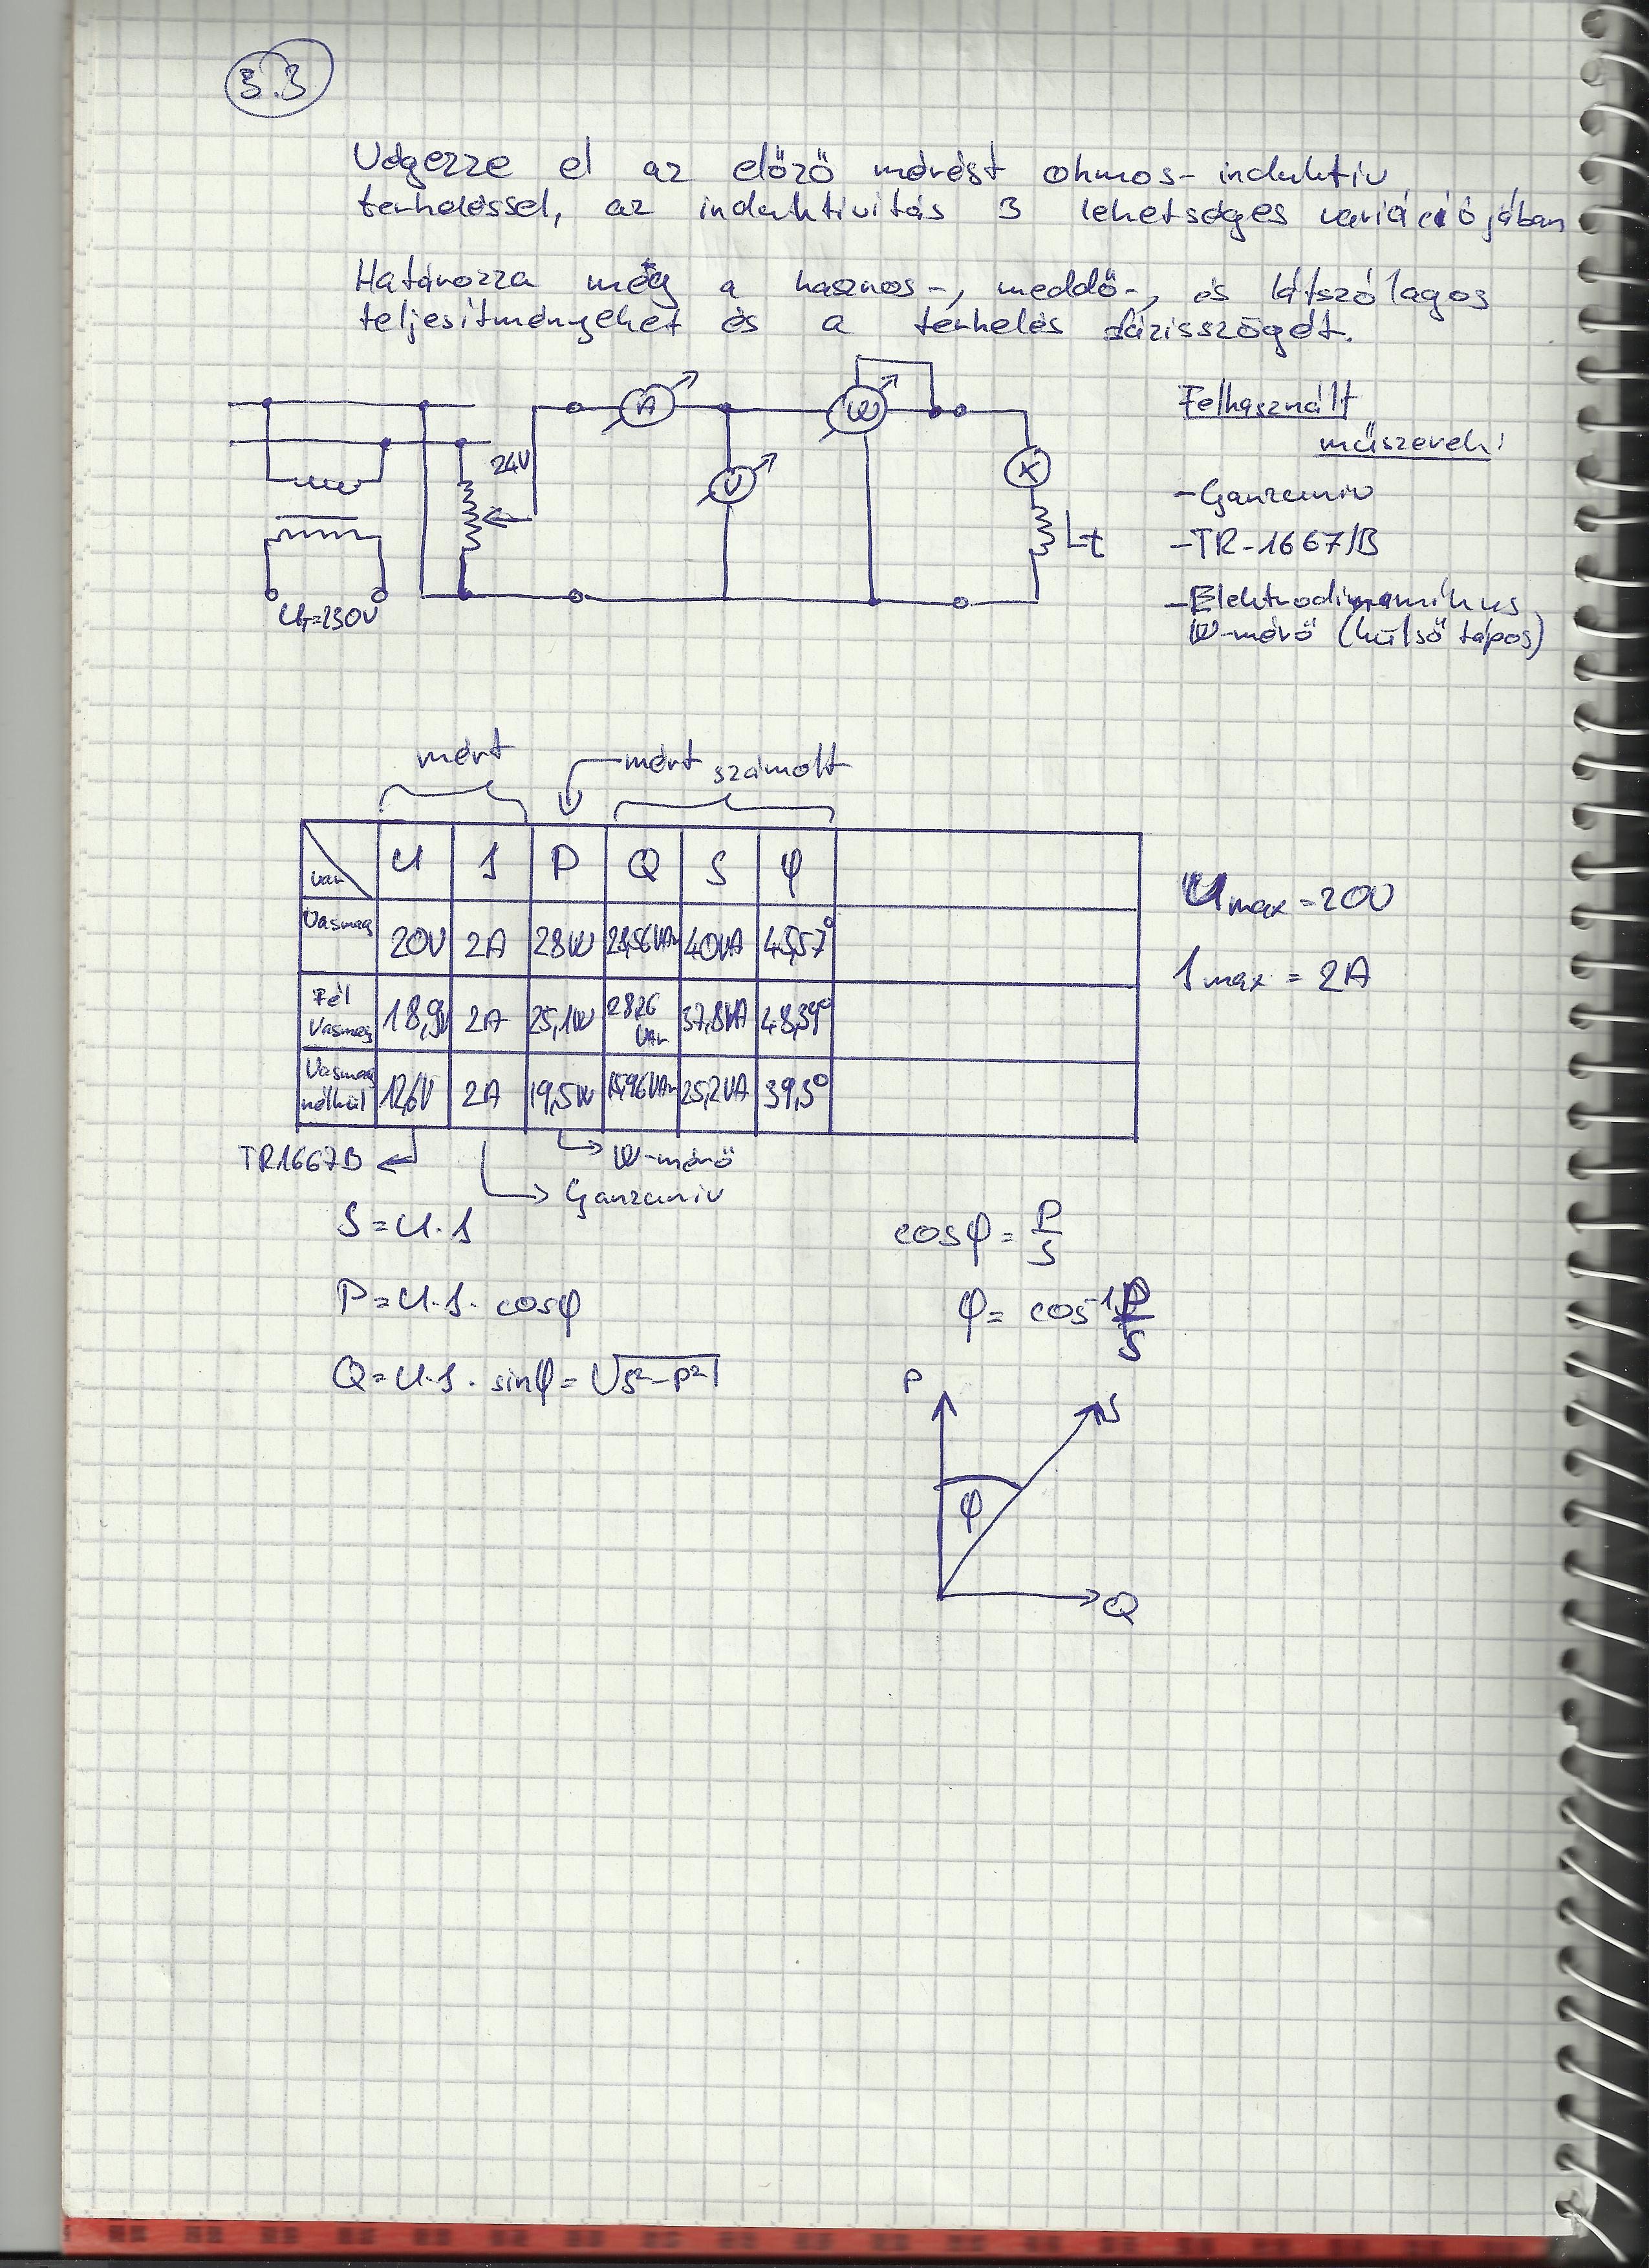 3.3
Végezze el az előző mérést ohmos-induktív
terheléssel, az induktivitás 3 lehetséges variációjában
Határozza meg a hasznos-, meddő-, és látszólagos
teljesítményeket és a terhelés fázisszögét.
A
W
24V
V
X
Lt
UT=230V
Felhasznált
műszerek:
-Ganzuniv
-TR-1667/B
-Elektrodinamikus
W-mérő (külső tápos)
mért
mért
számolt
var U I P Q S φ
Vasmag 20V 2A 28W 28,56VAr 40VA 45,57°
Fél Vasmag 18,9V 2A 25,1W 28,26 VAr 37,8VA 48,39°
Vasmag nélkül 12,6V 2A 19,5W 15,96VAr 25,2VA 39,3°
Umax=20V
Imax=2A
TR1667B
W-mérő
Ganzuniv
S=U·I
P=U·I·cosφ
Q=U·I·sinφ=√S²-P²
cosφ=P/S
φ=cos⁻¹P/S
P
S
φ
Q